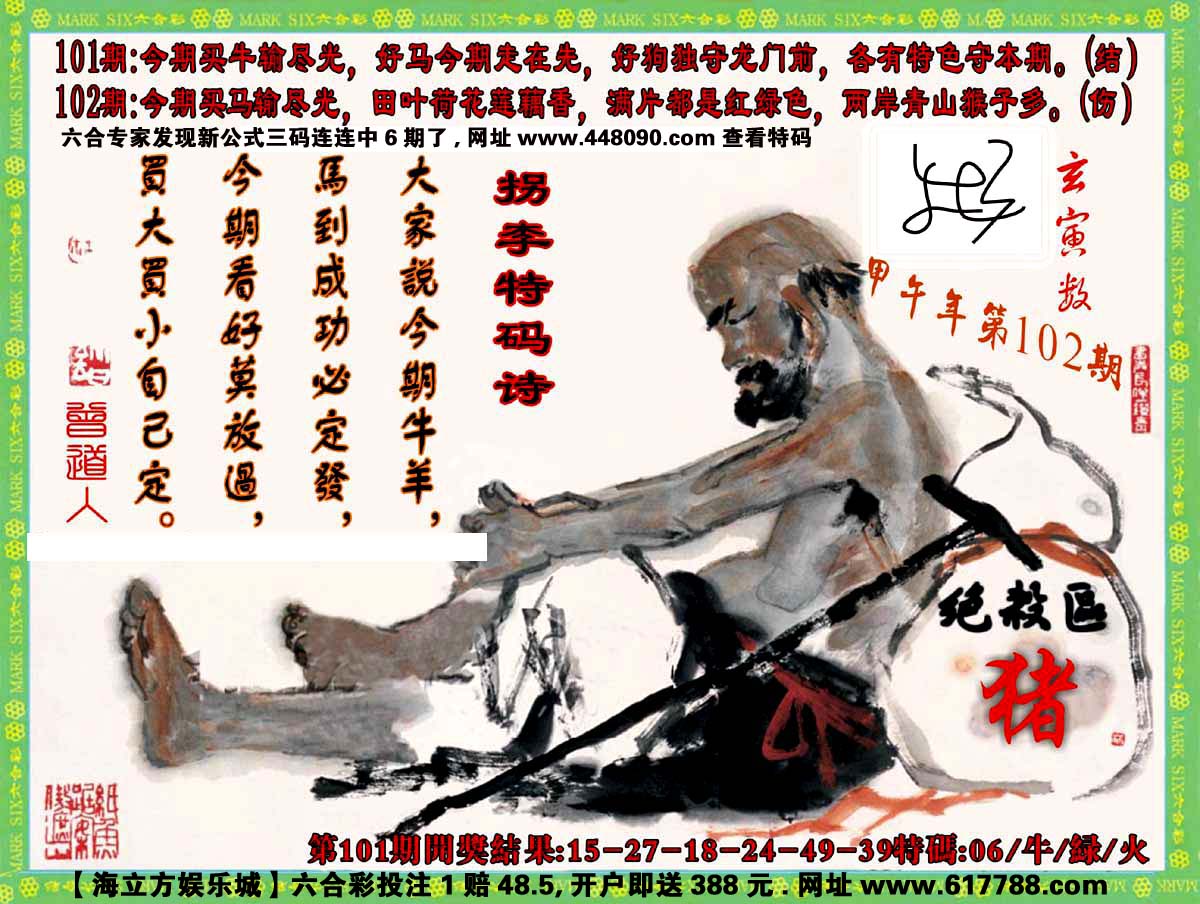 MARK SIX六合彩
101期:今期买牛输尽光，好马今期走在先，好狗独守龙门前，各有特色守本期。(结)
102期:今期买马输尽光，田叶荷花莲藕香，满片都是红绿色，两岸青山猴子多。(伤)
六合专家发现新公式三码连连中 6 期了 , 网址 www.448090.com 查看特码
玄寅数
甲午年第102期
拐李特码诗
大家説今期牛羊，
馬到成功必定發，
今期看好莫放過，
買大買小自己定。
曾道人
绝殺区
猪
第101期開獎結果:15-27-18-24-49-39特碼:06/牛/緑/火
【海立方娱乐城】六合彩投注 1 赔 48.5, 开户即送 388 元 . 网址 www.617788.com